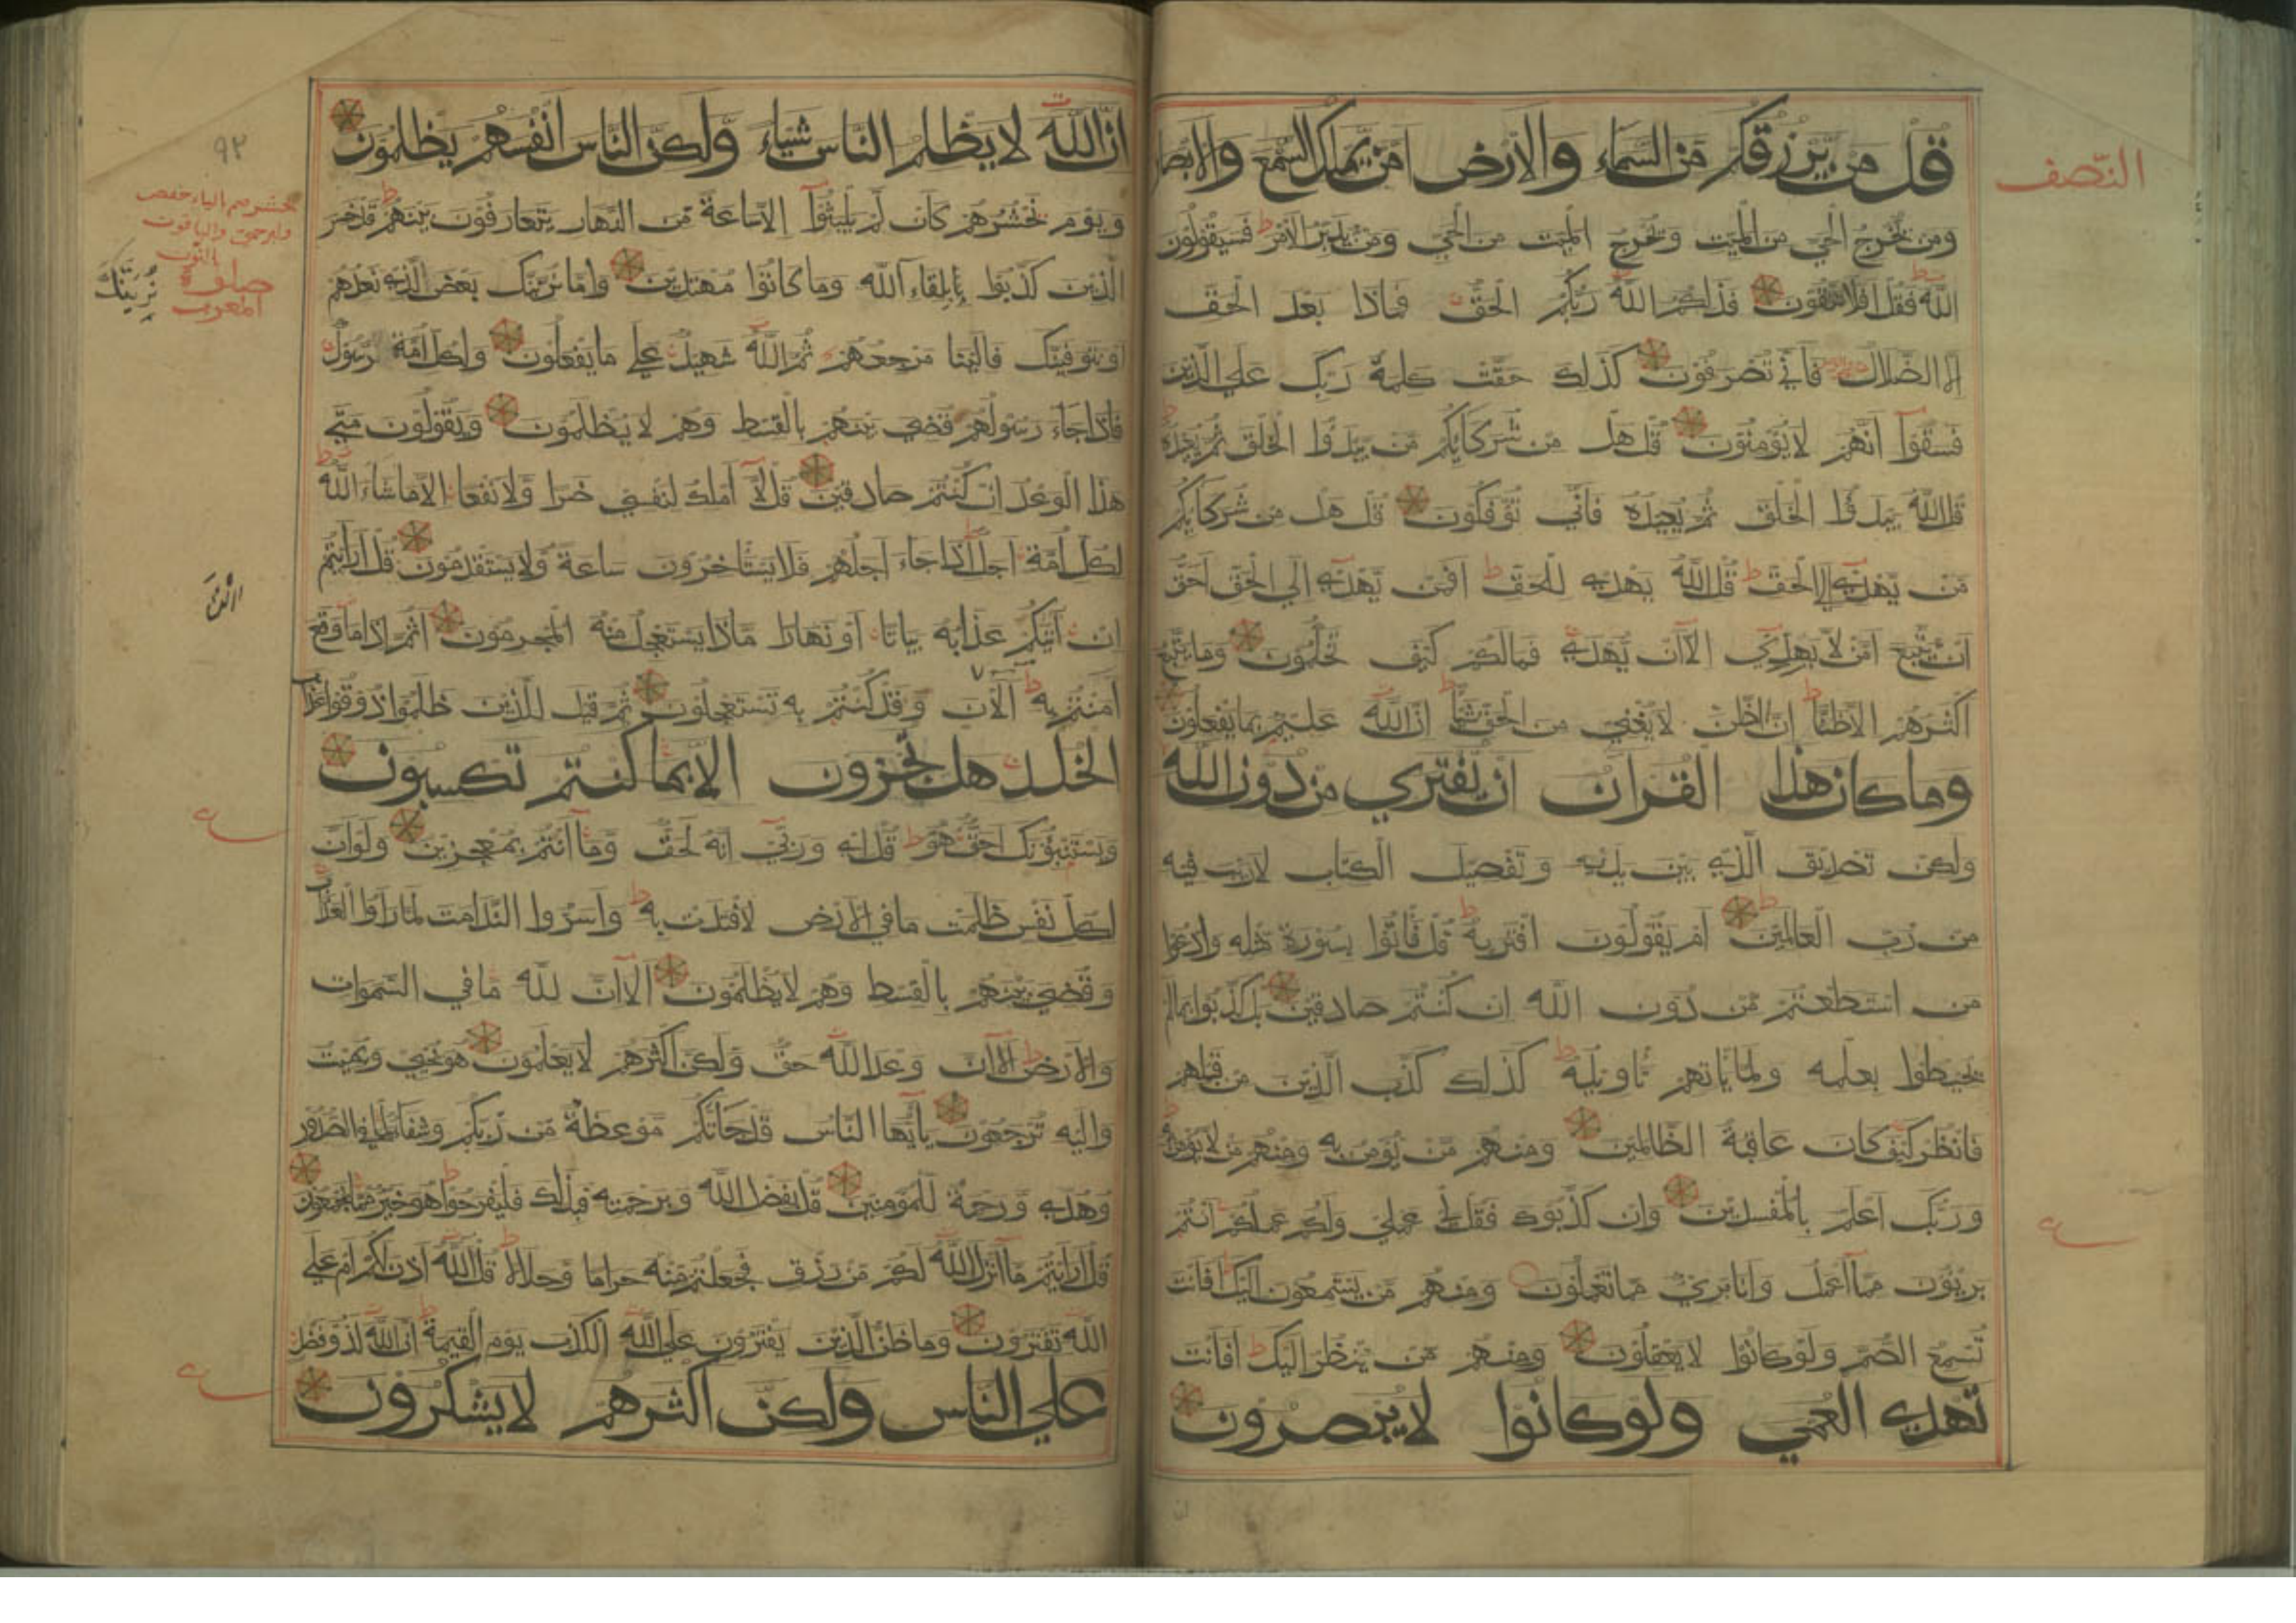 النّصف
قُلْ مَن يَّرْزُقُكُمْ مِّنَ السَّمَاءِ وَالْاَرْضِ اَمَّنْ يَّمْلِكُ السَّمْعَ وَالْاَبْصَارَ
وَمَنْ يُّخْرِجُ الْحَيَّ مِنَ الْمَيِّتِ وَيُخْرِجُ الْمَيِّتَ مِنَ الْحَيِّ وَمَنْ يُّدَبِّرُ الْاَمْرَ ط فَسَيَقُوْلُوْنَ
اللّٰهُ فَقُلْ اَفَلَا تَتَّقُوْنَ فَذٰلِكُمُ اللّٰهُ رَبُّكُمُ الْحَقُّ فَمَاذَا بَعْدَ الْحَقِّ
اِلَّا الضَّلَالُ فَاَنّٰي تُصْرَفُوْنَ كَذٰلِكَ حَقَّتْ كَلِمَةُ رَبِّكَ عَلَي الَّذِيْنَ
فَسَقُوْا اَنَّهُمْ لَا يُؤْمِنُوْنَ قُلْ هَلْ مِنْ شُرَكَايِكُمْ مَّنْ يَّبْدَؤُا الْخَلْقَ ثُمَّ يُعِيْدُهُ
قُلِ اللّٰهُ يَبْدَؤُا الْخَلْقَ ثُمَّ يُعِيْدُهُ فَاَنّٰي تُؤْفَكُوْنَ قُلْ هَلْ مِنْ شُرَكَايِكُمْ
مَّنْ يَّهْدِيْ اِلَي الْحَقِّ ط قُلِ اللّٰهُ يَهْدِيْ لِلْحَقِّ ط اَفَمَنْ يَّهْدِيْ اِلَي الْحَقِّ اَحَقُّ
اَنْ يُّتَّبَعَ اَمَّنْ لَّا يَهِدِّيْ اِلَّا اَنْ يُّهْدٰي فَمَالَكُمْ كَيْفَ تَحْكُمُوْنَ وَمَا يَتَّبِعُ
اَكْثَرُهُمْ اِلَّا ظَنًّا ط اِنَّ الظَّنَّ لَا يُغْنِيْ مِنَ الْحَقِّ شَيْئًا ط اِنَّ اللّٰهَ عَلِيْمٌ بِمَا يَفْعَلُوْنَ
وَمَا كَانَ هٰذَا الْقُرْاٰنُ اَنْ يُّفْتَرٰي مِنْ دُوْنِ اللّٰهِ
وَلٰكِنْ تَصْدِيْقَ الَّذِيْ بَيْنَ يَدَيْهِ وَتَفْصِيْلَ الْكِتَابِ لَا رَيْبَ فِيْهِ
مِنْ رَّبِّ الْعَالَمِيْنَ ط اَمْ يَقُوْلُوْنَ افْتَرٰيهُ ط قُلْ فَاْتُوْا بِسُوْرَةٍ مِّثْلِهِ وَادْعُوْا
مَنِ اسْتَطَعْتُمْ مِّنْ دُوْنِ اللّٰهِ اِنْ كُنْتُمْ صَادِقِيْنَ بَلْ كَذَّبُوْا بِمَا لَمْ
يُحِيْطُوْا بِعِلْمِهِ وَلَمَّا يَاْتِهِمْ تَاْوِيْلُهُ ط كَذٰلِكَ كَذَّبَ الَّذِيْنَ مِنْ قَبْلِهِمْ
فَانْظُرْ كَيْفَ كَانَ عَاقِبَةُ الظَّالِمِيْنَ وَمِنْهُمْ مَّنْ يُّؤْمِنُ بِهِ وَمِنْهُمْ مَّنْ لَّا يُؤْمِنُ بِهِ
وَرَبُّكَ اَعْلَمُ بِالْمُفْسِدِيْنَ وَاِنْ كَذَّبُوْكَ فَقُلْ لِّيْ عَمَلِيْ وَلَكُمْ عَمَلُكُمْ اَنْتُمْ
بَرِيْئُوْنَ مِمَّا اَعْمَلُ وَاَنَا بَرِيْءٌ مِّمَّا تَعْمَلُوْنَ وَمِنْهُمْ مَّنْ يَّسْتَمِعُوْنَ اِلَيْكَ اَفَاَنْتَ
تُسْمِعُ الصُّمَّ وَلَوْ كَانُوْا لَا يَعْقِلُوْنَ وَمِنْهُمْ مَّنْ يَّنْظُرُ اِلَيْكَ ط اَفَاَنْتَ
تَهْدِي الْعُمْيَ وَلَوْ كَانُوْا لَا يُبْصِرُوْنَ
ان
٩٢
اِنَّ اللّٰهَ لَا يَظْلِمُ النَّاسَ شَيْئًا وَّلٰكِنَّ النَّاسَ اَنْفُسَهُمْ يَظْلِمُوْنَ
وَيَوْمَ نَحْشُرُهُمْ كَاَنْ لَّمْ يَلْبَثُوْا اِلَّا سَاعَةً مِّنَ النَّهَارِ يَتَعَارَفُوْنَ بَيْنَهُمْ ط قَدْ خَسِرَ
الَّذِيْنَ كَذَّبُوْا بِلِقَاءِ اللّٰهِ وَمَا كَانُوْا مُهْتَدِيْنَ وَاِمَّا نُرِيَنَّكَ بَعْضَ الَّذِيْ نَعِدُهُمْ
اَوْ نَتَوَفَّيَنَّكَ فَاِلَيْنَا مَرْجِعُهُمْ ثُمَّ اللّٰهُ شَهِيْدٌ عَلٰي مَا يَفْعَلُوْنَ وَلِكُلِّ اُمَّةٍ رَّسُوْلٌ
فَاِذَا جَاءَ رَسُوْلُهُمْ قُضِيَ بَيْنَهُمْ بِالْقِسْطِ وَهُمْ لَا يُظْلَمُوْنَ وَيَقُوْلُوْنَ مَتٰي
هٰذَا الْوَعْدُ اِنْ كُنْتُمْ صَادِقِيْنَ قُلْ لَّا اَمْلِكُ لِنَفْسِيْ ضَرًّا وَّلَا نَفْعًا اِلَّا مَا شَاءَ اللّٰهُ
لِكُلِّ اُمَّةٍ اَجَلٌ اِذَا جَاءَ اَجَلُهُمْ فَلَا يَسْتَاْخِرُوْنَ سَاعَةً وَّلَا يَسْتَقْدِمُوْنَ قُلْ اَرَاَيْتُمْ
اِنْ اَتٰيكُمْ عَذَابُهُ بَيَاتًا اَوْ نَهَارًا مَّاذَا يَسْتَعْجِلُ مِنْهُ الْمُجْرِمُوْنَ اَثُمَّ اِذَا مَا وَقَعَ
اٰمَنْتُمْ بِهِ ط اٰلْاٰنَ وَقَدْ كُنْتُمْ بِهِ تَسْتَعْجِلُوْنَ ثُمَّ قِيْلَ لِلَّذِيْنَ ظَلَمُوْا ذُوْقُوْا عَذَابَ
الْخُلْدِ هَلْ تُجْزَوْنَ اِلَّا بِمَا كُنْتُمْ تَكْسِبُوْنَ
وَيَسْتَنْبِئُوْنَكَ اَحَقٌّ هُوَ ط قُلْ اِيْ وَرَبِّيْ اِنَّهُ لَحَقٌّ وَمَا اَنْتُمْ بِمُعْجِزِيْنَ وَلَوْ اَنَّ
لِكُلِّ نَفْسٍ ظَلَمَتْ مَا فِي الْاَرْضِ لَافْتَدَتْ بِهِ ط وَاَسَرُّوا النَّدَامَتَ لَمَّا رَاَوُا الْعَذَابَ
وَقُضِيَ بَيْنَهُمْ بِالْقِسْطِ وَهُمْ لَا يُظْلَمُوْنَ اَلَا اِنَّ لِلّٰهِ مَا فِي السَّمٰوَاتِ
وَالْاَرْضِ ط اَلَا اِنَّ وَعْدَ اللّٰهِ حَقٌّ وَّلٰكِنَّ اَكْثَرَهُمْ لَا يَعْلَمُوْنَ هُوَ يُحْيِيْ وَيُمِيْتُ
وَاِلَيْهِ تُرْجَعُوْنَ يٰاَيُّهَا النَّاسُ قَدْ جَاءَتْكُمْ مَّوْعِظَةٌ مِّنْ رَّبِّكُمْ وَشِفَاءٌ لِّمَا فِي الصُّدُوْرِ
وَهُدًي وَّرَحْمَةٌ لِّلْمُؤْمِنِيْنَ قُلْ بِفَضْلِ اللّٰهِ وَبِرَحْمَتِهِ فَبِذٰلِكَ فَلْيَفْرَحُوْا ط هُوَ خَيْرٌ مِّمَّا يَجْمَعُوْنَ
قُلْ اَرَاَيْتُمْ مَّا اَنْزَلَ اللّٰهُ لَكُمْ مِّنْ رِّزْقٍ فَجَعَلْتُمْ مِّنْهُ حَرَامًا وَّحَلَالًا ط قُلْ اٰللّٰهُ اَذِنَ لَكُمْ اَمْ عَلَي
اللّٰهِ تَفْتَرُوْنَ وَمَا ظَنُّ الَّذِيْنَ يَفْتَرُوْنَ عَلَي اللّٰهِ الْكَذِبَ يَوْمَ الْقِيٰمَةِ ط اِنَّ اللّٰهَ لَذُوْ فَضْلٍ
عَلَي النَّاسِ وَلٰكِنَّ اَكْثَرَهُمْ لَا يَشْكُرُوْنَ
نُرِيَنَّكَ